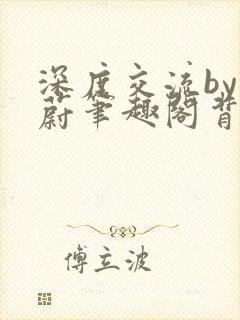 深度交流by
蔚笔趣阁背
傅立波